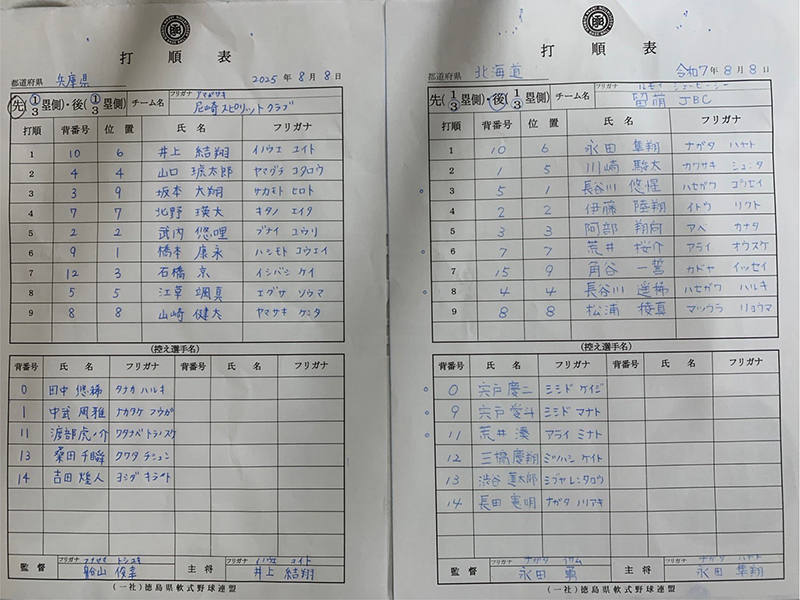 打順表
都道府県 兵庫県 2025年8月8日
先(1/3塁側)・後(1/3塁側) チーム名 フリガナ アマガサキ
尼崎スピリットクラブ
打順 背番号 位置 氏名 フリガナ
1 10 6 井上 結翔 イノウエ エイト
2 4 4 山口 琥太郎 ヤマグチ コタロウ
3 3 9 坂本 大翔 サカモト ヒロト
4 7 7 北野 瑛大 キタノ エイタ
5 2 2 武内 悠哩 ブナイ ユウリ
6 9 1 橋本 康永 ハシモト コウエイ
7 12 3 石橋 京 イシバシ ケイ
8 5 5 江草 颯真 エグサ ソウマ
9 8 8 山崎 健太 ヤマサキ ケンタ
(控え選手名)
背番号 氏名 フリガナ 背番号 氏名 フリガナ
0 田中 悠稀 タナカ ハルキ
1 中武 周雅 ナカタケ
11 渡部 虎ノ介 ワタナベ トラノスケ
13 桑田 千瞬 クワタ チシュン
14 吉田 煌人 ヨシダ キラト
監督 フリガナ フナヤマ トシユキ 主将 フリガナ イノウエ エイト
船山 俊幸 井上 結翔
(一社)徳島県軟式野球連盟
打順表
都道府県 北海道 令和7年8月8日
先(1/3塁側)・後(1/3塁側) チーム名 フリガナ ルモイ ジェービーシー
留萌 JBC
打順 背番号 位置 氏名 フリガナ
1 10 6 永田 隼翔 ナガタ ハヤト
2 1 5 川崎 駿太 カワサキ シュンタ
3 5 1 長谷川 悠惺 ハセガワ ユウセイ
4 2 2 伊藤 陸翔 イトウ リクト
5 3 3 阿部 翔向 アベ カナタ
6 7 7 荒井 桜介 アライ オウスケ
7 15 9 角谷 一誓 カドヤ イッセイ
8 4 4 長谷川 遥稀 ハセガワ ハルキ
9 8 8 松浦 稜真 マツウラ リョウマ
(控え選手名)
背番号 氏名 フリガナ 背番号 氏名 フリガナ
0 宍戸 慶二 シシド ケイジ
9 宍戸 愛斗 シシド マナト
11 荒井 湊 アライ ミナト
12 三橋 慶翔 ミツハシ ケイト
13 渋谷 蓮太郎 シブヤ レンタロウ
14 長田 憲明 ナガタ ノリアキ
監督 フリガナ ナガタ 主将 フリガナ ナガタ ハヤト
永田 永田 隼翔
(一社)徳島県軟式野球連盟